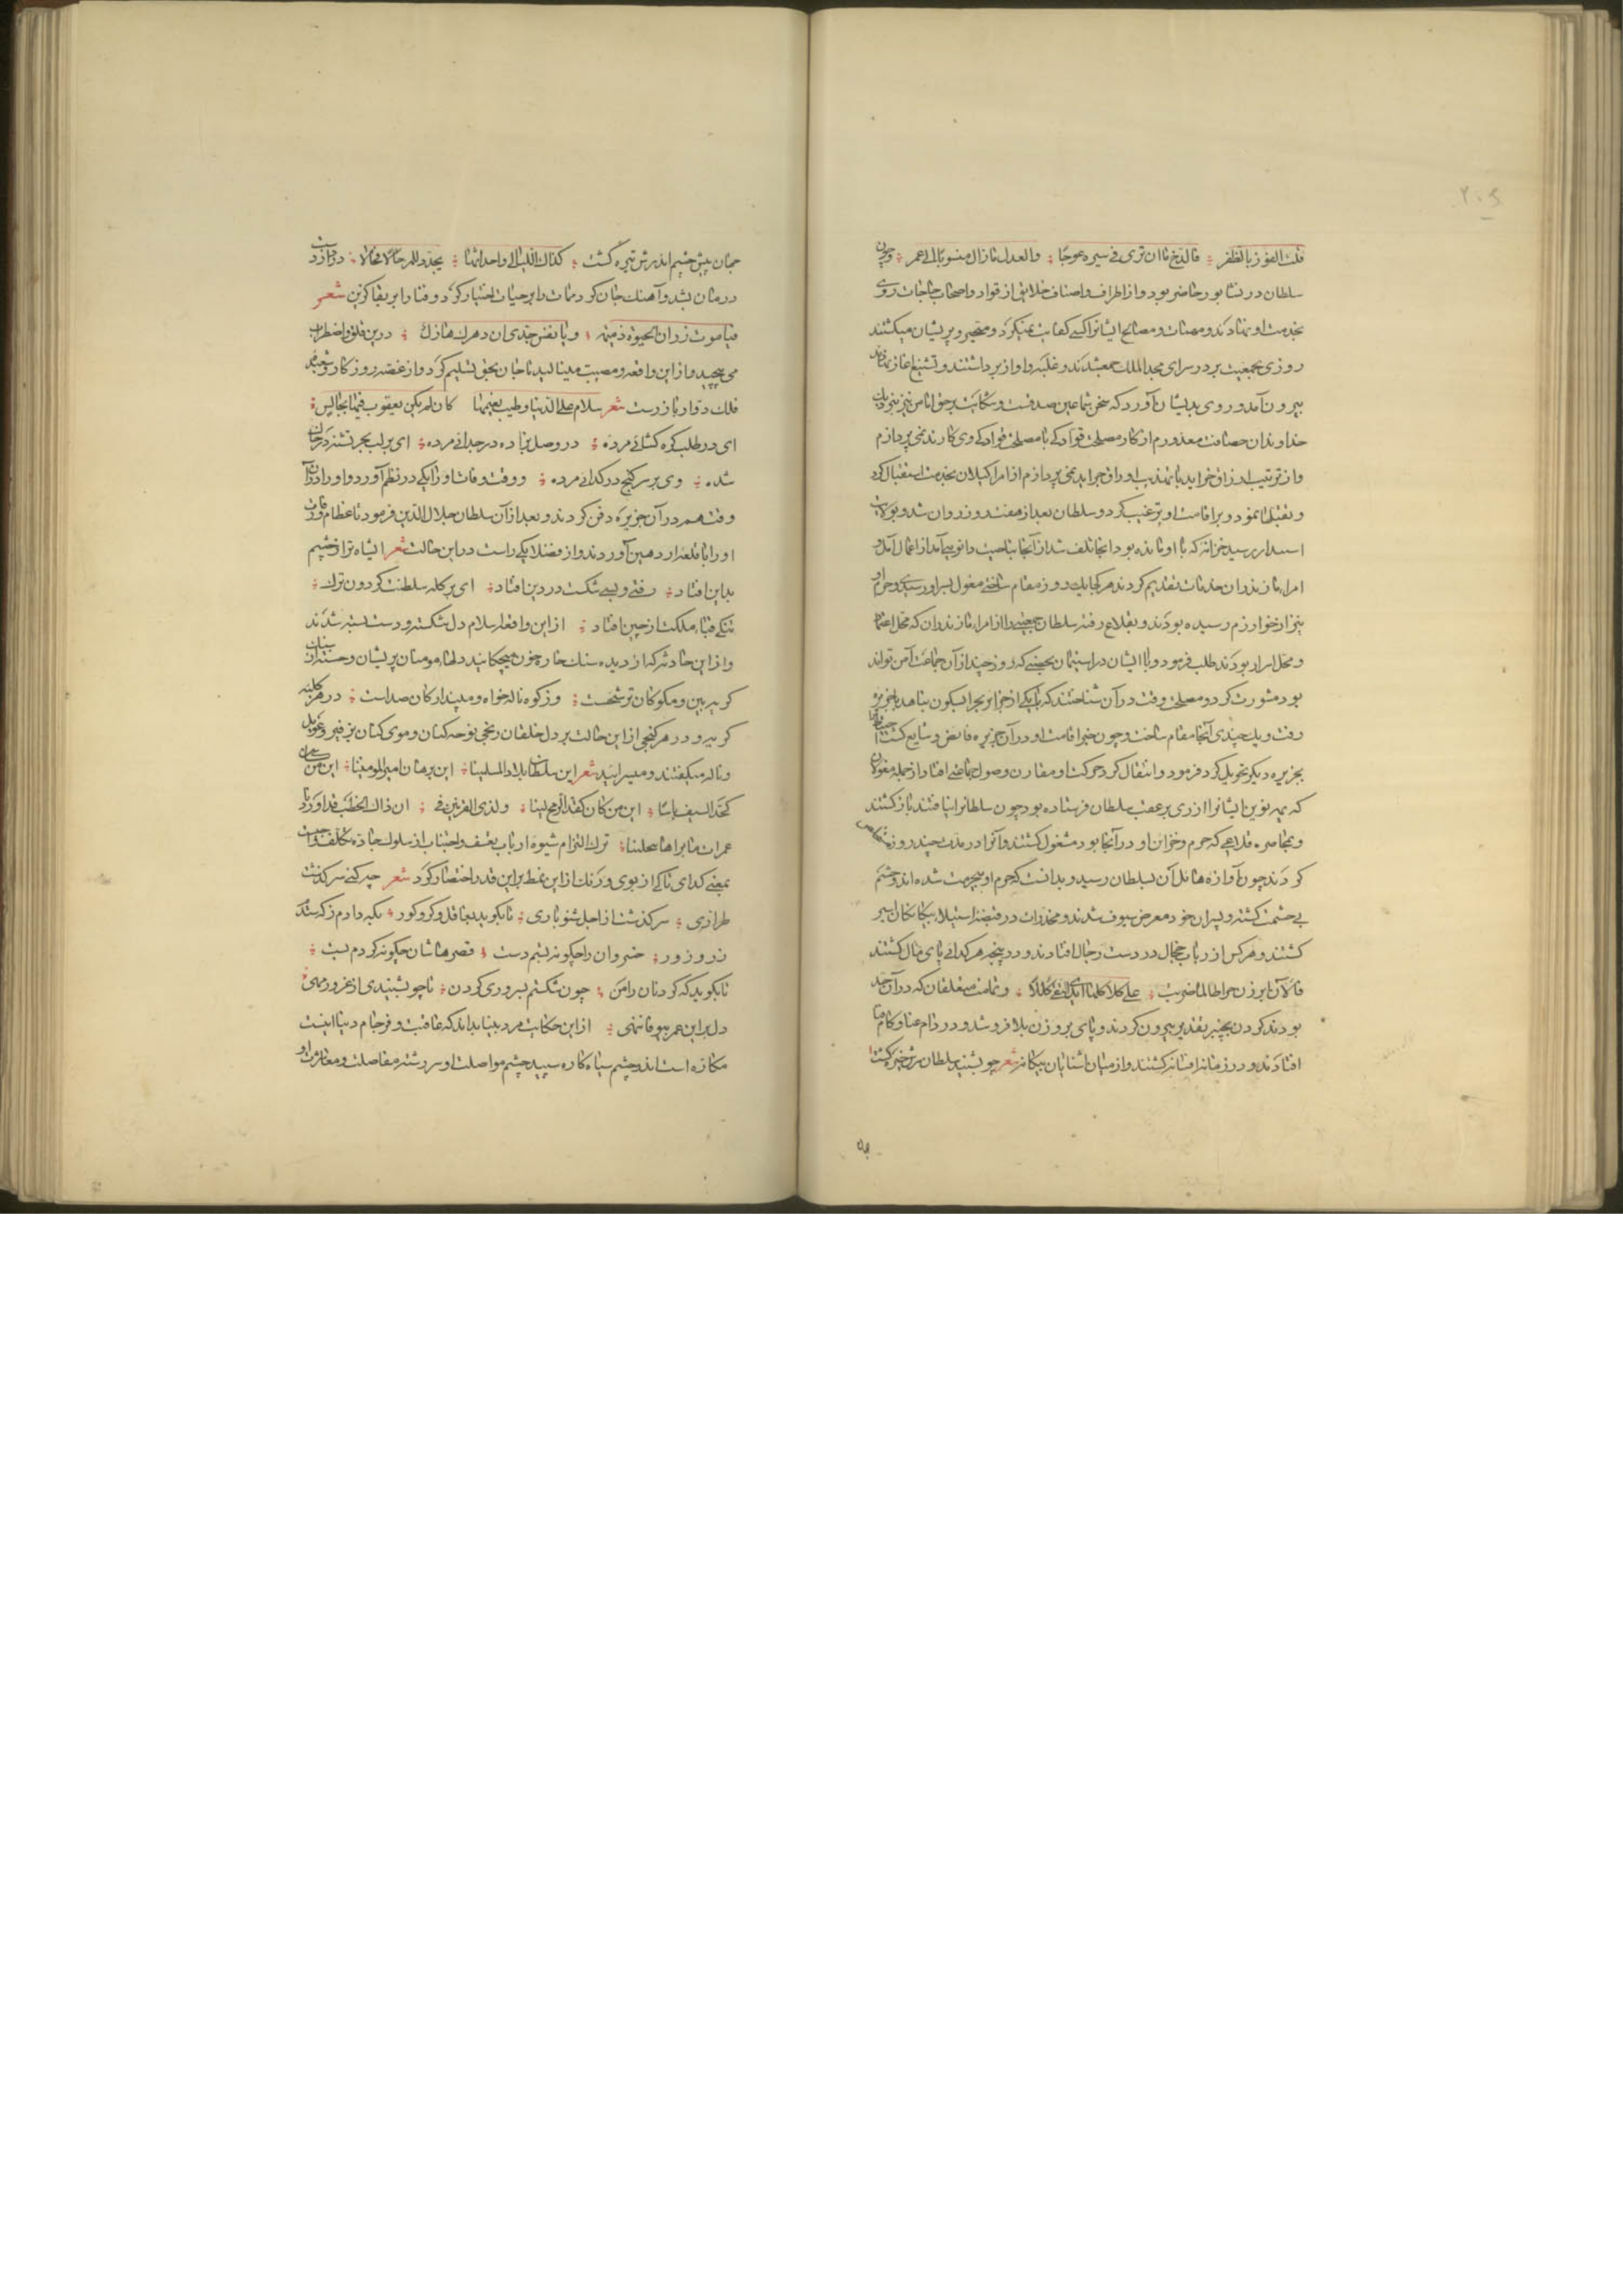 قلت الفوز بالظفر فالدخ ما ان تری فی سیره عوجا والعدل مازال منسوبا الی عمر وچون
سلطان در نشابور حاضر بود و از اطراف و اصناف خلایق از قواد و اصحاب حاجات روی
بخدمت او نهادند و مهمات و مصالح ایشانرا کسی کفایت نمیکرد و متحیر و پریشان میکشتند
روزی بجمعیت بر در سرای مجدالملک جمع شدند و غلبه و آواز برداشتند و تشنیع آغاز نهادند
بیرون آمد و روی بدیشان آورد که سخن شما عین صدقست و شکایت بر حق اما من نیز
خداوندان حصافت معذورم از کار مصلحت قوادکی با مصلحت قوادکی وی کار ند نمی پردازم
و از ترتیب ارزاق خراید با تهذیب اوراق جراید نمی پردازم از امرا کیلان بخدمت استقبال کرد
و تقبلها نمود و بر اقامت او ترغیب کرد و سلطان بعد از هفت روز روان شد و بولایت
اسبدار رسید خزانه که با او مانده بود آنجا تلف شد از آنجا بناحیت دانویی آمد از اعمال آمل و
امراء مازندران خدمات تقدیم کردند هر کجا یک دو روز مقام ساختی مغول بسر او رسیدی و حرم او
نیز از خوارزم رسیده بودند و بقلاع رفته سلطان جمعیتی را از امراء مازندران که محل اعتماد
و محل اسرار بودند طلب فرمود و با ایشان در استیمان بحصنی که روز چند از آن جماعت آمن تواند
بود مشورت کرد و مصلحت وقت در آن شناختند که با یکی از جزایر بحر ابسکون پناهد با جزیره
رفت و یک چندی آنجا مقام ساخت و چون خبر اقامت او در آن جزیره فایض و شایع کشت
بجزیره دیگر تحویل کرد فرمود و انتقال کرد حرکت او مقارن وصول جماعتی افتاد از جمله مغولان
که یمه نوین ایشانرا از ری بر عقب سلطان فرستاده بود چون سلطانرا نیافتند باز کشتند
و بمحاصره قلاعی که حرم و خزاین او در آنجا بود مشغول کشتند و آنرا در مدت چند روز مستخلص
کردند چون آوازه هایل آن بسلطان رسید و بدانست که حرم او بی حرمت شده اند و حشم
بی حشمت کشته و پسران خرد معرض سیوف شدند و مخدرات در قبضه استیلاء بیکانکان اسیر
کشتند و هر کس از ربات حجال در دست رجال افتادند و در پنجه هر کدائی پای مال کشتند
فالآن ابرزن حواطا لماضربت علی کلاکلها ایدی النفی کللا و تمامت مبغلقان که در آن حد
بودند کردن بچنبر تقدیر بیرون کردند و پای بر روزن بلا فرو شد و در دام عنا و کام فنا
افتادند و در زمانه افسانه کشتند و از میان آشنایان بیکانه شعر چو بشنید سلطان سرش خیره کشت
جهان پیش چشم اندرش تیره کشت کذاک اللیالی و احداثها یجددن للمرء حالا فحالا
درمان بشد و آهنک جان کرد ممات را بر حیات اختیار کرد و فنا را بر بقا کزین شعر
فیا موت زر ان الحیوة ذمیمة و یا نفس جدی ان دهرک هازل درین قلق و اضطراب
می پیچید و از این واقعه و مصیبت مینالید تا جان بحق تسلیم کرد و از غصه روزکار و شعبده
فلک دوار باز رست شعر سلام علی الدنیا و طیب نعیمها کان لم یکن یعقوب فیها بجالس
ای در طلب کره کشائی مرده در وصل بزاده در جدائی مرده ای بر لب بحر تشنه در خاک
شده وی بر سر کنج در کدائی مرده و وقت وفات او را یکی در نظم آورد و او را در آن
وقت هم در آن جزیره دفن کردند و بعد از آن سلطان جلال الدین فرمود تا عظام
او را با قلعه اردهین آوردند و از فضلا یکی راست در این حالت شعر ای شاه ترا ز خشم
بداین افتاد رفتی و بسی شکست در دین افتاد ای بر کله سلطنت کردون ترک
تنکی قباء ملکت از چین افتاد از این واقعه اسلام دل شکسته و دست بسته شدند
و از این حادثه که از دیده سنک خاره خون میچکانید دلهاء مومنان پریشان و خسته
کریه بین و مکو کان ترشحست وز کوه ناله خواه و مپندار کان صداست در هر کلبه
کریه و در هر کنجی از این حالت بر دل خلقان رنجی نوحه کنان و موی کنان بزفیر و عویل
و ناله میکفتند و میسرائید شعر این سلطان بلاد المسلمینا این برهان امیر المومنینا این من
کحد السیف باسا این من کان کقد الرمح لینا ولذی القرنین فی ان ذاک الخطب قد اورد
عمران ما براها محلنا ترک التزام شیوه ارباب تعسف و اجتناب از سلوک جاده تکلف
بمعنی کدای ناکی از بوی و رنک از این نمط بر این قدر اختصار کرد شعر چه کنی سرکذشت
طرازی سرکذشت از اجل شنو باری تا بکوید بعاقل و کر و کور بکه دادم زکه ستدم
زر و زور خسروان را چکونه بستم دست قصر هاشان چکونه کردم پست
تا بکوید که کردنان را من چون شکستم بسروری کردن تا چو بشنیدی از غرور مهی
دل بر این عمر بیوفا ننهی از این حکایت مرد بینا بداند که عاقبت و فرجام دنیا اینست
مکاره است اند و چشم سیاه کاره سپید چشم مواصلت او سر رشته مفاصلت و معاشرت او